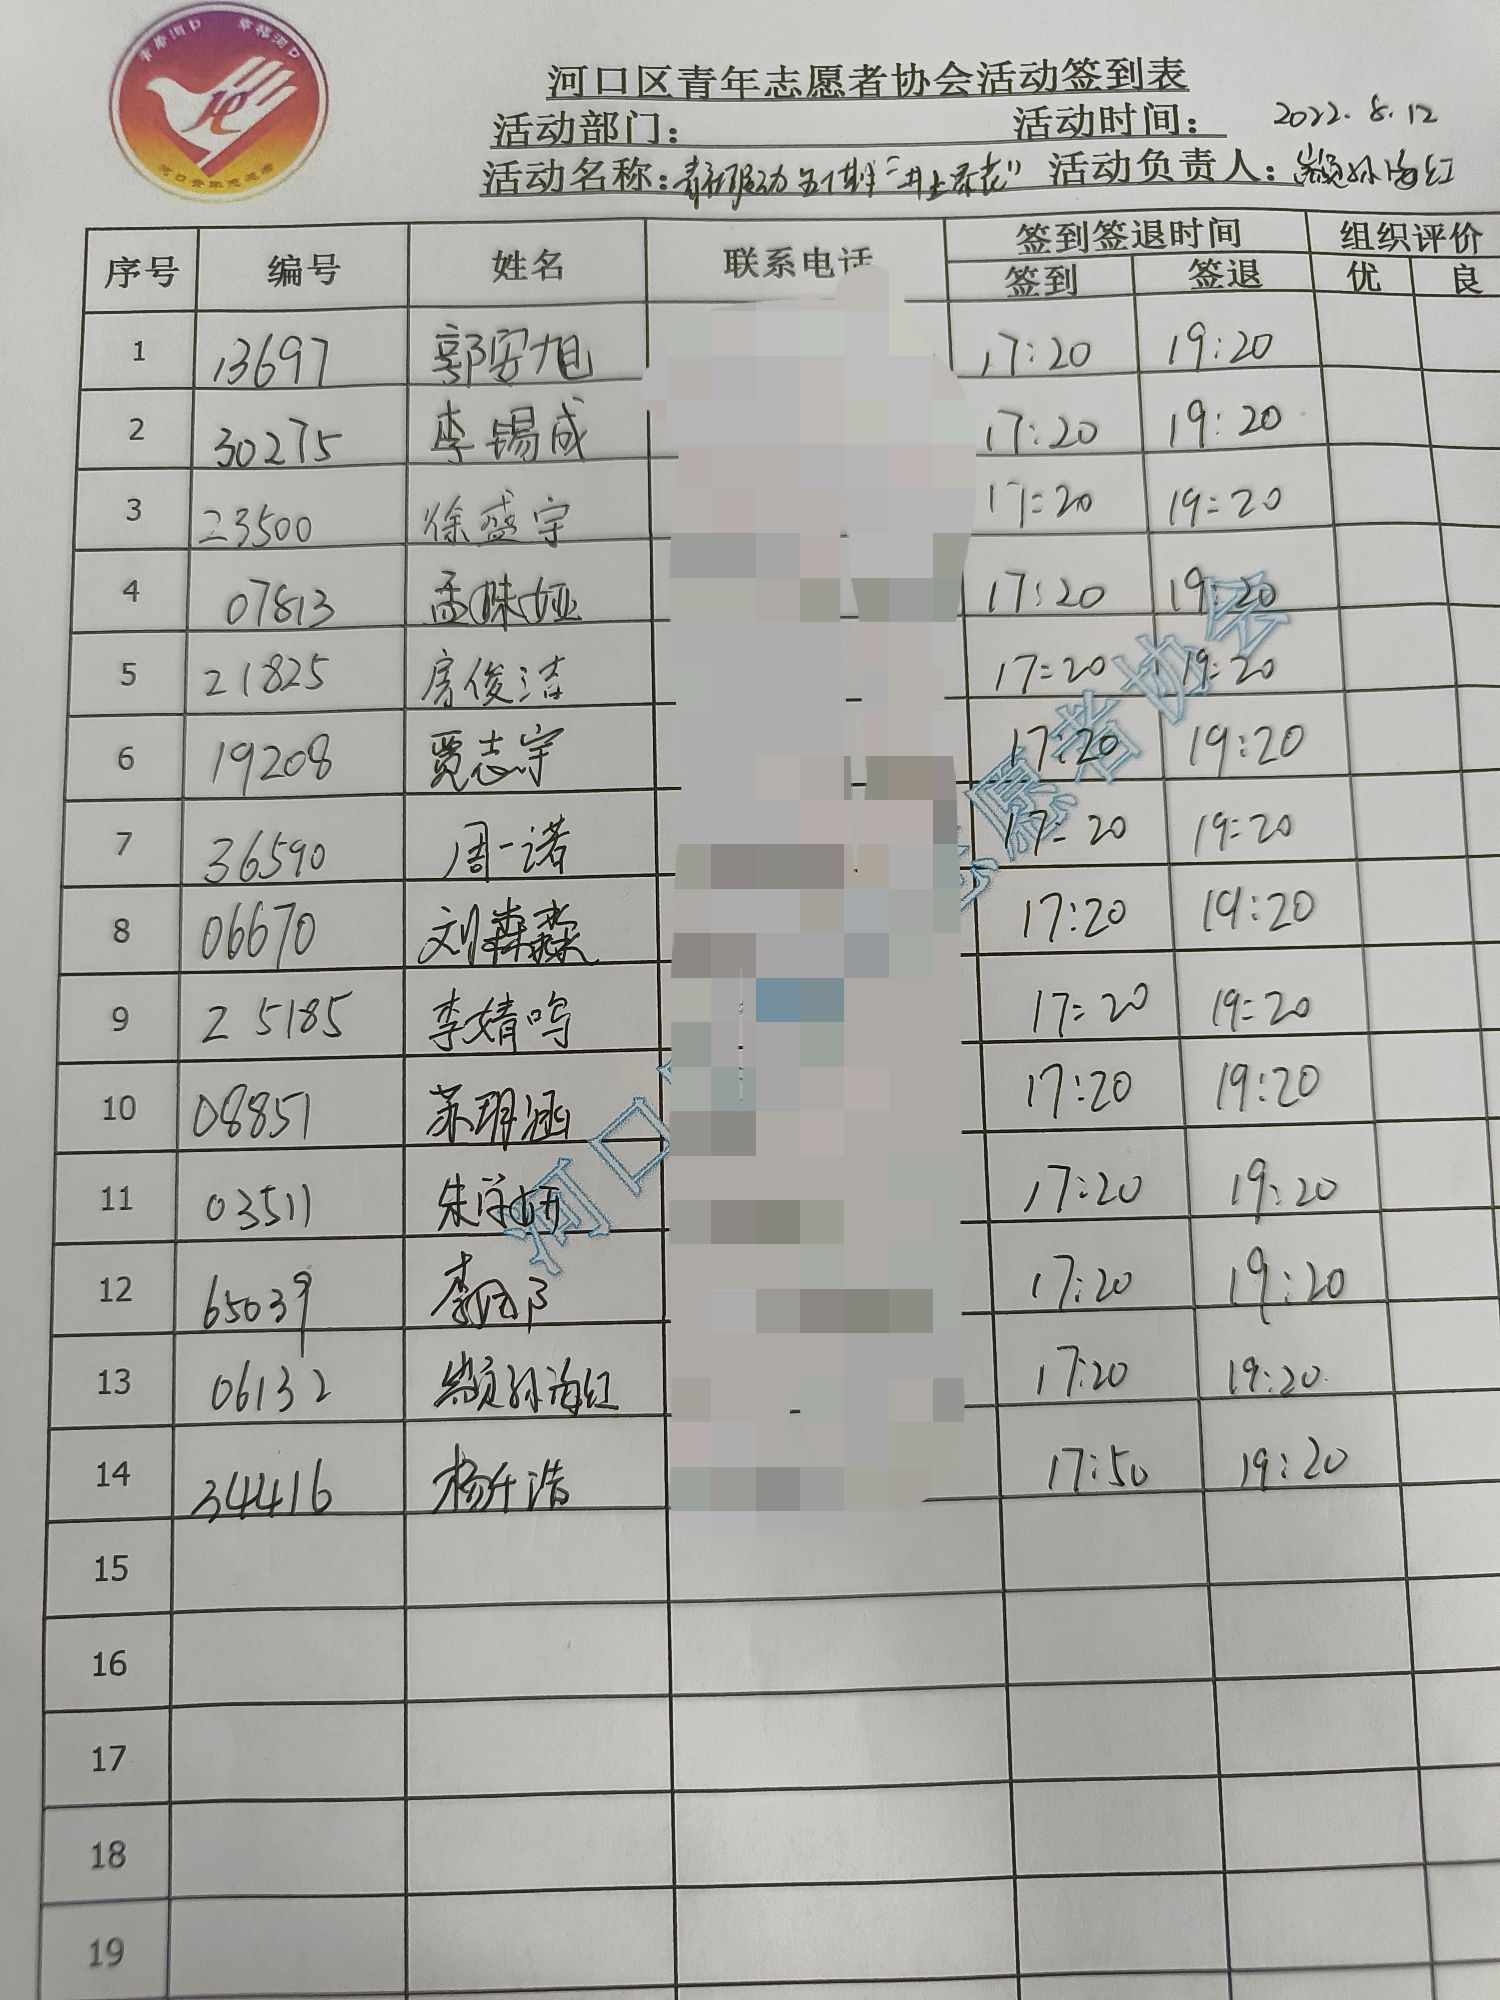 河口区青年志愿者协会活动签到表
活动部门： 活动时间： 2022.8.12
活动名称： "井上添花" 活动负责人：颛孙海红
序号 编号 姓名 联系电话 签到签退时间 组织评价
签到 签退 优 良
1 13697 郭安旭 17:20 19:20
2 30275 李锡成 17:20 19:20
3 23500 徐盛宇 17:20 19:20
4 07813 孟姝娅 17:20 19:20
5 21825 房俊洁 17:20 19:20
6 19208 贾志宇 17:20 19:20
7 36590 周一诺 17:20 19:20
8 06670 刘森淼 17:20 19:20
9 25185 李婧鸣 17:20 19:20
10 08851 苏玥涵 17:20 19:20
11 03511 朱学妍 17:20 19:20
12 65039 李 17:20 19:20
13 06132 颛孙海红 17:20 19:20
14 34416 杨仟浩 17:50 19:20
15
16
17
18
19
河口 志愿者协会